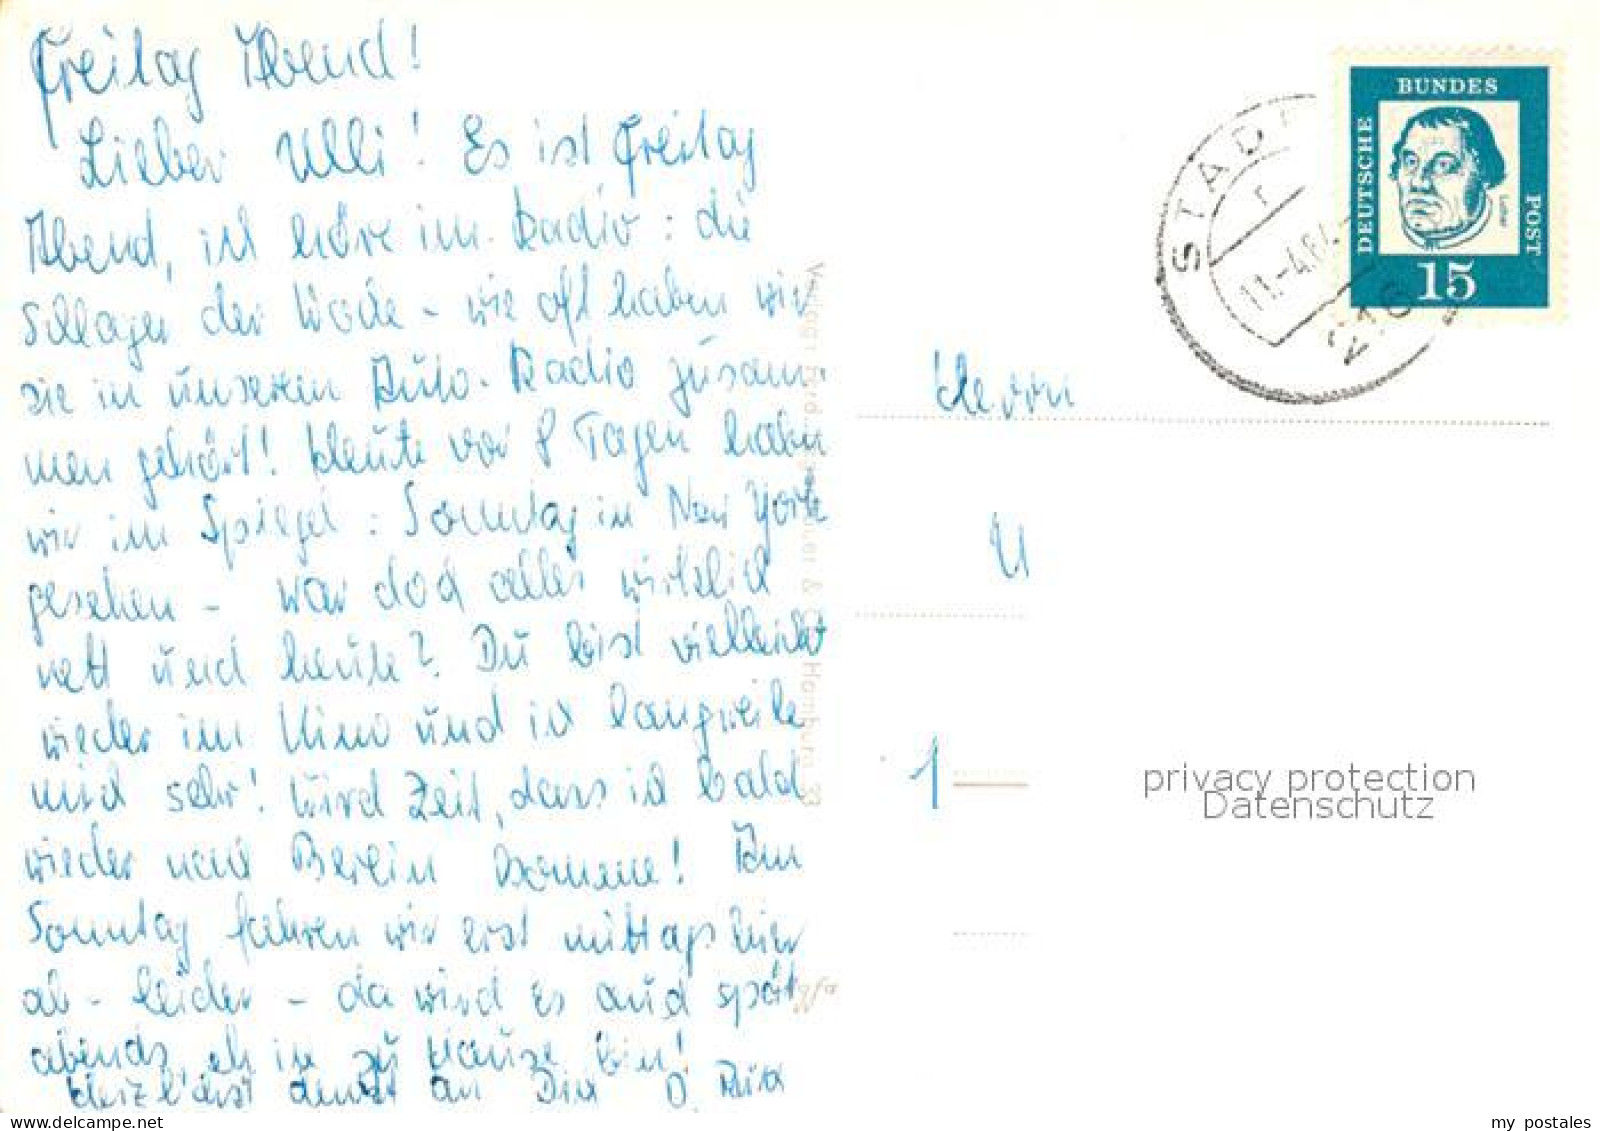 Freitag Abend!
Lieber Ulli! Es ist Freitag
Abend, ich höre im Radio: die
Schlager der Woche - wie oft haben wir
sie in unserem Auto-Radio zusam-
men gehört! Heute vor 8 Tagen haben
wir im Spiegel: Sonntag in New York
gesehen - war doch alles wirklich
nett und heute? Du bist vielleicht
wieder im Kino und ich langweile
mich sehr! Wird Zeit, dass ich bald
wieder nach Berlin komme! Am
Sonntag fahren wir erst mittags hier
ab - leider - da wird es auch spät
abends, eh ich zu Hause bin!
Herzlichst denkt an Dich D.
Verlag Ferd. & Co Hamburg 33
BUNDES
DEUTSCHE
POST
Luther
15
STAD
11.-4.64.
216
Herrn
U
1
privacy protection
Datenschutz
my postales